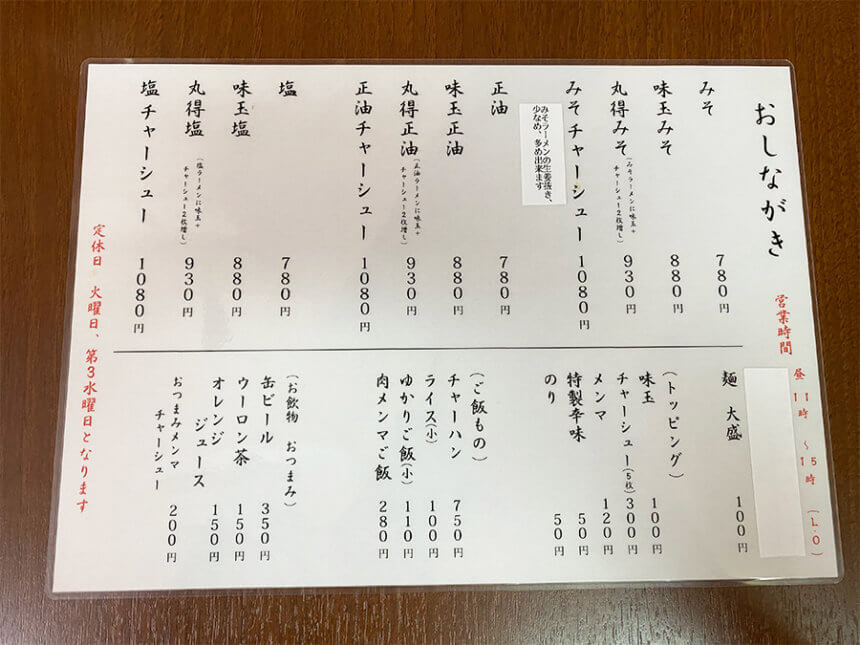 おしながき
営業時間
昼 11時 ～ 15時 (L.O)
みそ 780円
味玉みそ 880円
丸得みそ (みそラーメンに味玉+ チャーシュー2枚増し) 930円
みそチャーシュー 1080円
みそラーメンの生姜抜き、
少なめ、多め出来ます
正油 780円
味玉正油 880円
丸得正油 (正油ラーメンに味玉+ チャーシュー2枚増し) 930円
正油チャーシュー 1080円
塩 780円
味玉塩 880円
丸得塩 (塩ラーメンに味玉+ チャーシュー2枚増し) 930円
塩チャーシュー 1080円
麺 大盛 100円
(トッピング)
味玉 100円
チャーシュー(5枚) 300円
メンマ 120円
特製辛味 50円
のり 50円
(ご飯もの)
チャーハン 750円
ライス(小) 100円
ゆかりご飯(小) 110円
肉メンマご飯 280円
(お飲物 おつまみ)
缶ビール 350円
ウーロン茶 150円
オレンジ
ジュース 150円
おつまみメンマ
チャーシュー 200円
定休日 火曜日、第3水曜日となります